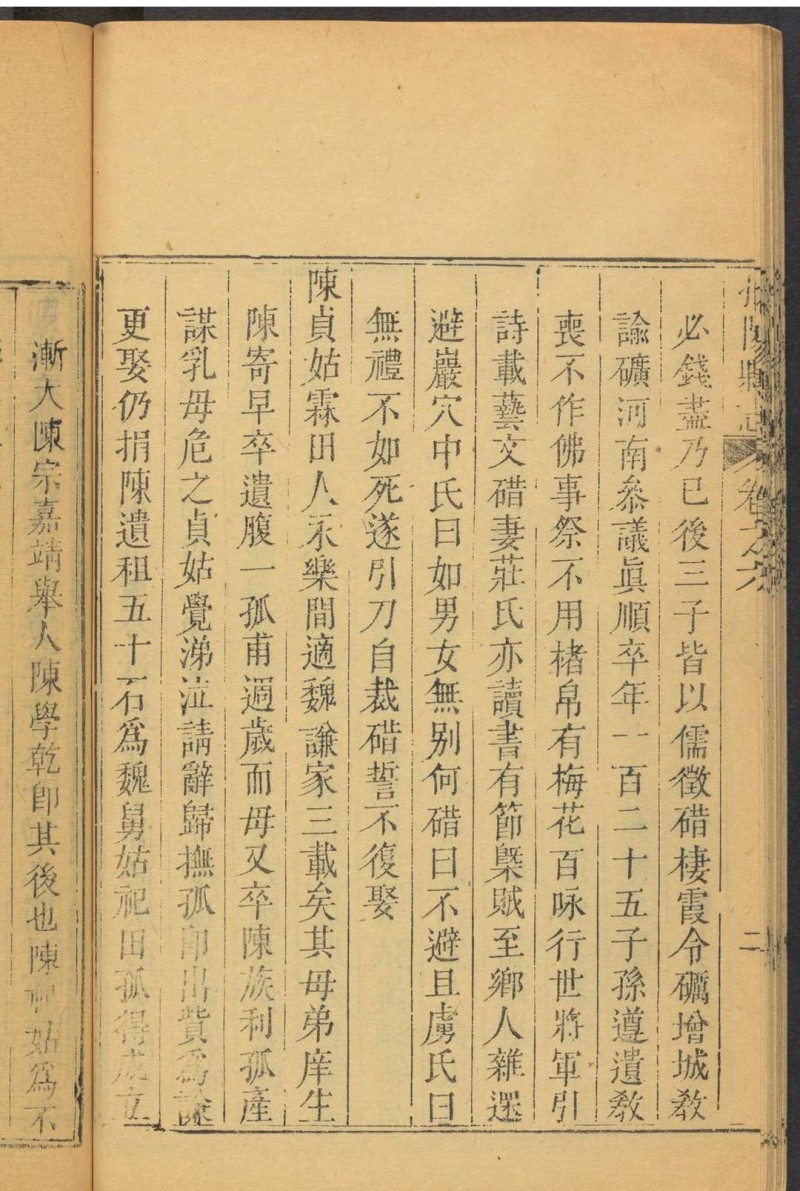 揭陽縣志 卷之六 二
必錢盡乃已後三子皆以儒徵碏棲霞令礪增城教
諭礦河南叅議眞順卒年一百二十五子孫遵遺敎
喪不作佛事祭不用楮帛有梅花百咏行世將軍引
詩載藝文碏妻莊氏亦讀書有節槩賊至鄉人雜遝
避巖穴中氏曰如男女無别何碏曰不避且虜氏曰
無禮不如死遂引刀自裁碏誓不復娶
陳貞姑霖田人永樂間適魏謙家三載矣其母弟庠生
陳寄早卒遺腹一孤甫週歲而母又卒陳族利孤產
謀乳母危之貞姑覺涕泣請辭歸撫孤卽出貲爲謙
更娶仍捐陳遺租五十石爲魏舅姑祀田孤得成立
漸大陳宗嘉靖舉人陳學乾卽其後也陳祀姑爲不